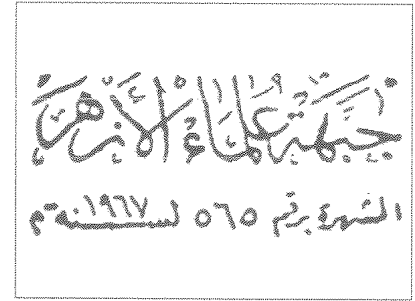 جبهة علماء الأزهر
الشهرة برقم ٥٦٥ لسنة ١٩٦٧م